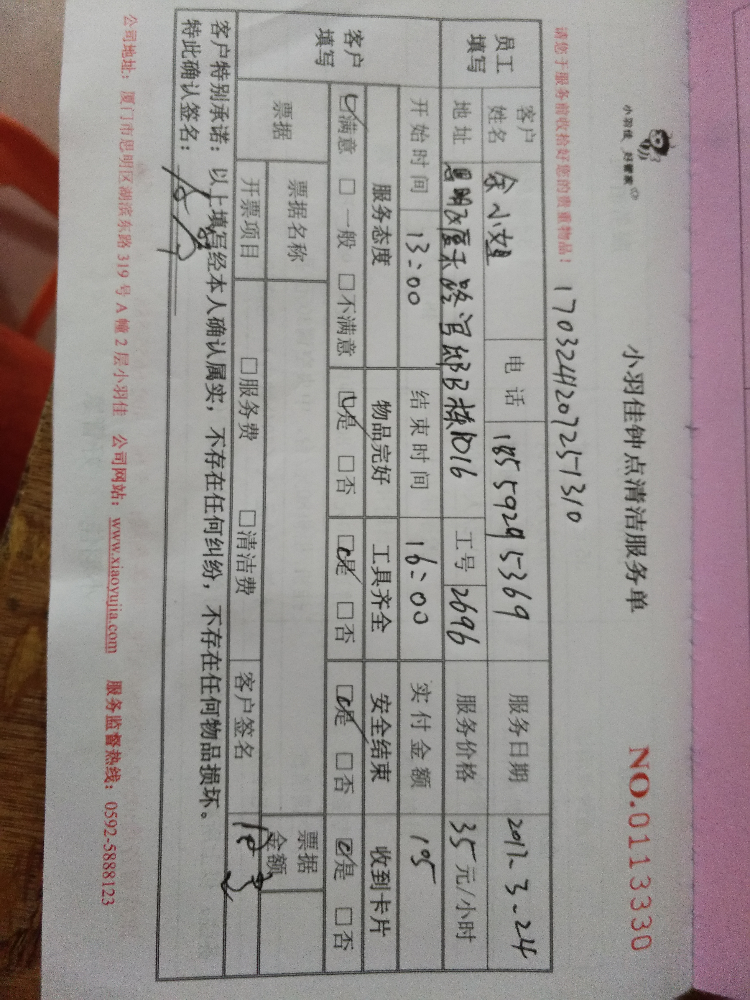 小羽佳 好管家
小羽佳钟点清洁服务单
NO.0113330
请您于服务前收拾好您的贵重物品！
170324120725 1310
员工填写
客户姓名 余小姐 电话 185 5929 5369 服务日期 2017-3-24
地址 思明区厦禾路 B栋1016 工号 2696 服务价格 35元/小时
开始时间 13:00 结束时间 16:00 实付金额 105
客户填写
服务态度 物品完好 工具齐全 安全结束 收到卡片
☑满意 □一般 □不满意 ☑是 □否 ☑是 □否 ☑是 □否 ☑是 □否
票据 票据名称 票据金额
开票项目 □服务费 □清洁费 客户签名
客户特别承诺：以上填写经本人确认属实，不存在任何纠纷，不存在任何物品损坏。
特此确认签名：
公司地址：厦门市思明区湖滨东路 319 号 A 幢 2 层小羽佳 公司网站：www.xiaoyujia.com 服务监督热线：0592-5888123